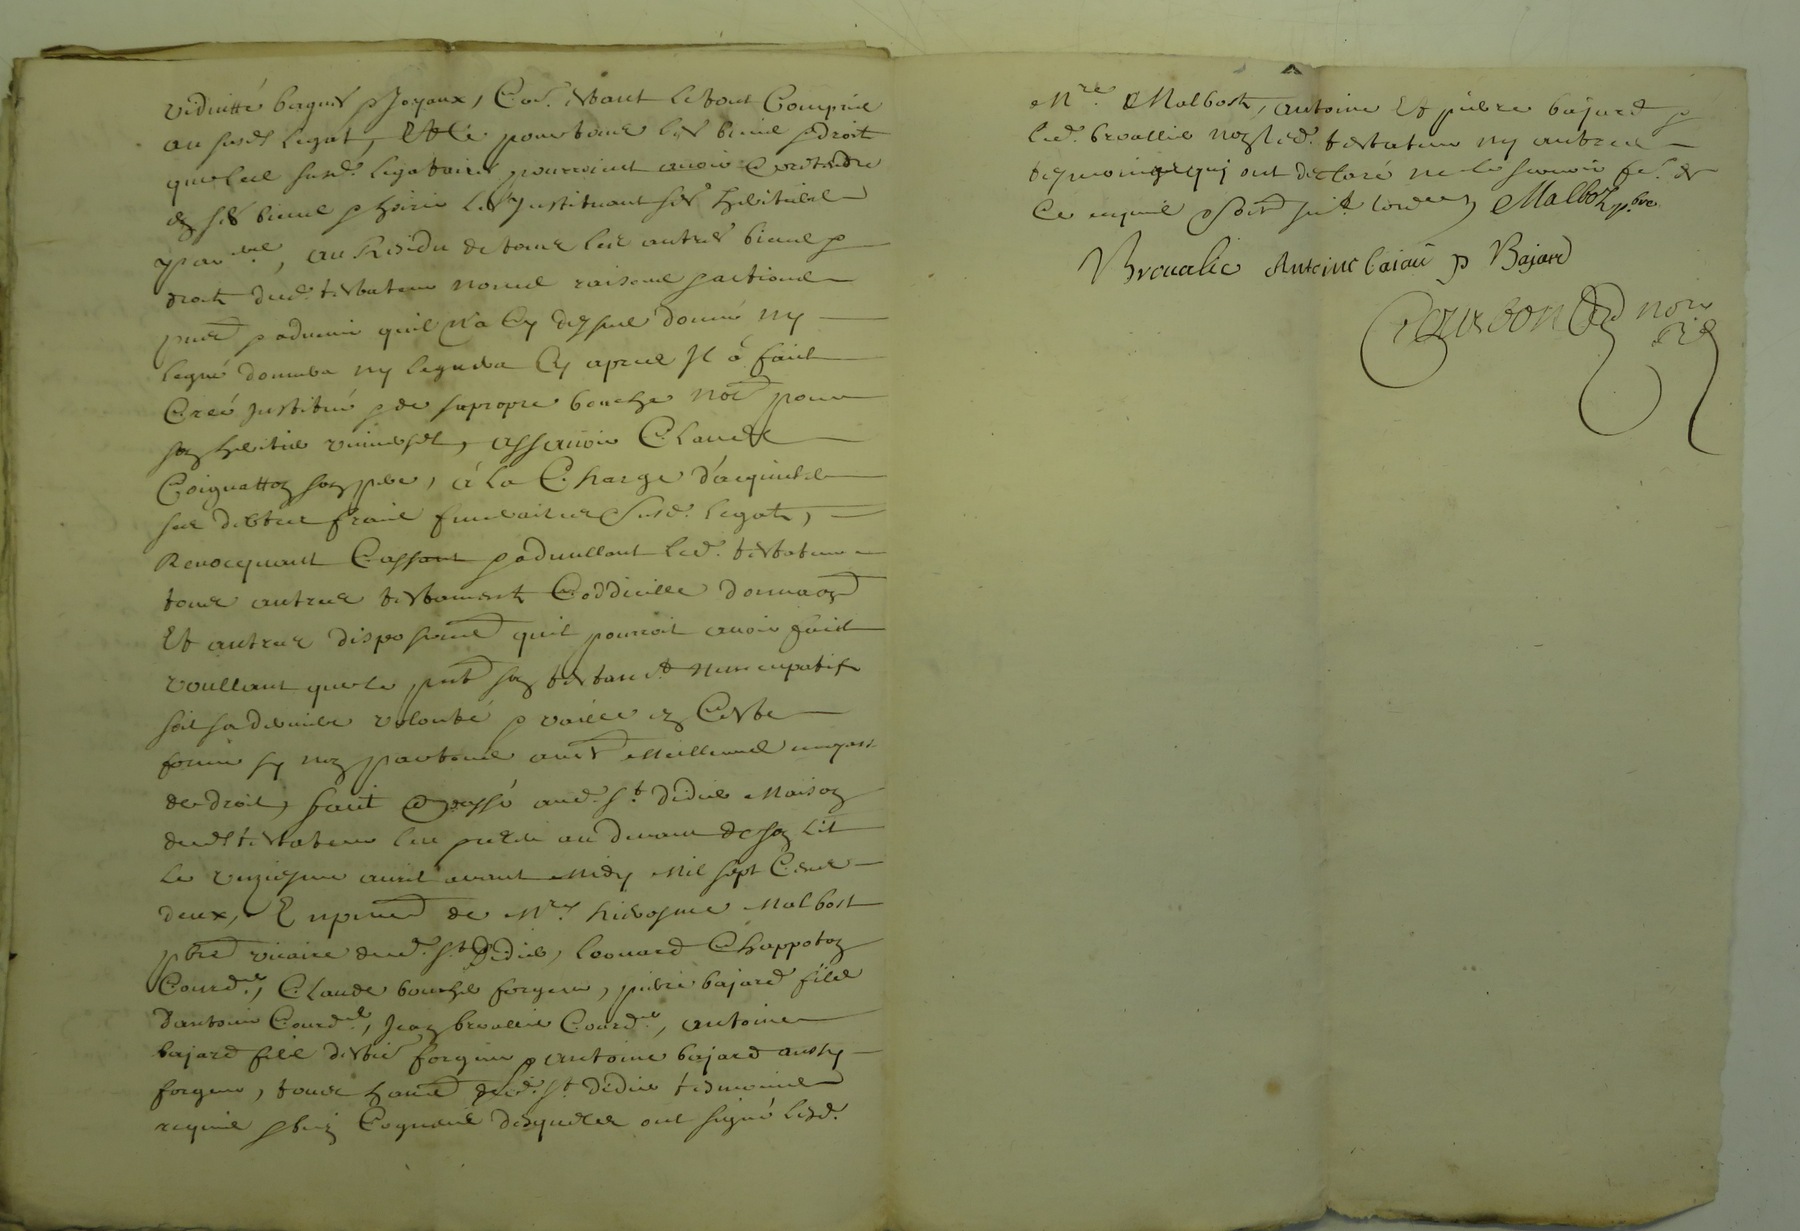 viduitté bagues & Joyaux, Car. estant le tout Compris
au susd. legat, Et Ce pour tous les biens & droit
que les susd. legataires pourroient avoir & prétendre
es ses biens & hoirie les Instituant ses héritiers
particul., au Residu de tous les autres biens &
droits dud. testateur noms raisons & actions
pnts & advenir quil n'a Cy dessus donné ny
legué donnera ny leguera Cy apres Il á faict
Creé institué & de sa propre bouche noé pour
son heritier universel, assavoir Claude
Coignatton son pere, á la Charge d'acquitter
ses debtes frais funeraires susd. legats,
Revocquant Cassant & adnullant led. testateur
tous autres testaments Coddicilles donnaon
Et autres disposions quil pourroit avoir faict
voullant que le pnt son testamt nuncupatif
soit sa derniere volonté & vaille en Ceste
forme sy non par tous autres Meilleurs moyens
de droit, fait & passé aud. st. didier Maison
dud. testateur leu & releu au devant de son lit
le unziesme avril avant Midy Mil sept Cens
deux, En pnce de Mre hierosme Malbost
pbre vicaire dud. st. Didier, Leonard Chappoton
Courd.r, Claude bouché forgeur, pierre bajard fils
d'antoine Courd.r, Jean brouallie Courd.r, antoine
bajard fils d'estie forgeur & antoine bajard aussy
forgeur, tous habit. dud. st. didier tesmoins
requis & bien Cogneus desquels ont signé lesd.
Mre Malbost, antoine Et pierre bajard &
led. brouallie non led. testateur ny autres
tesmoins qui ont declaré ne le scavoir fe. de
Ce enquis & Malbost pbre
Broualie Antoine baiar p Bajard
Courbon nore